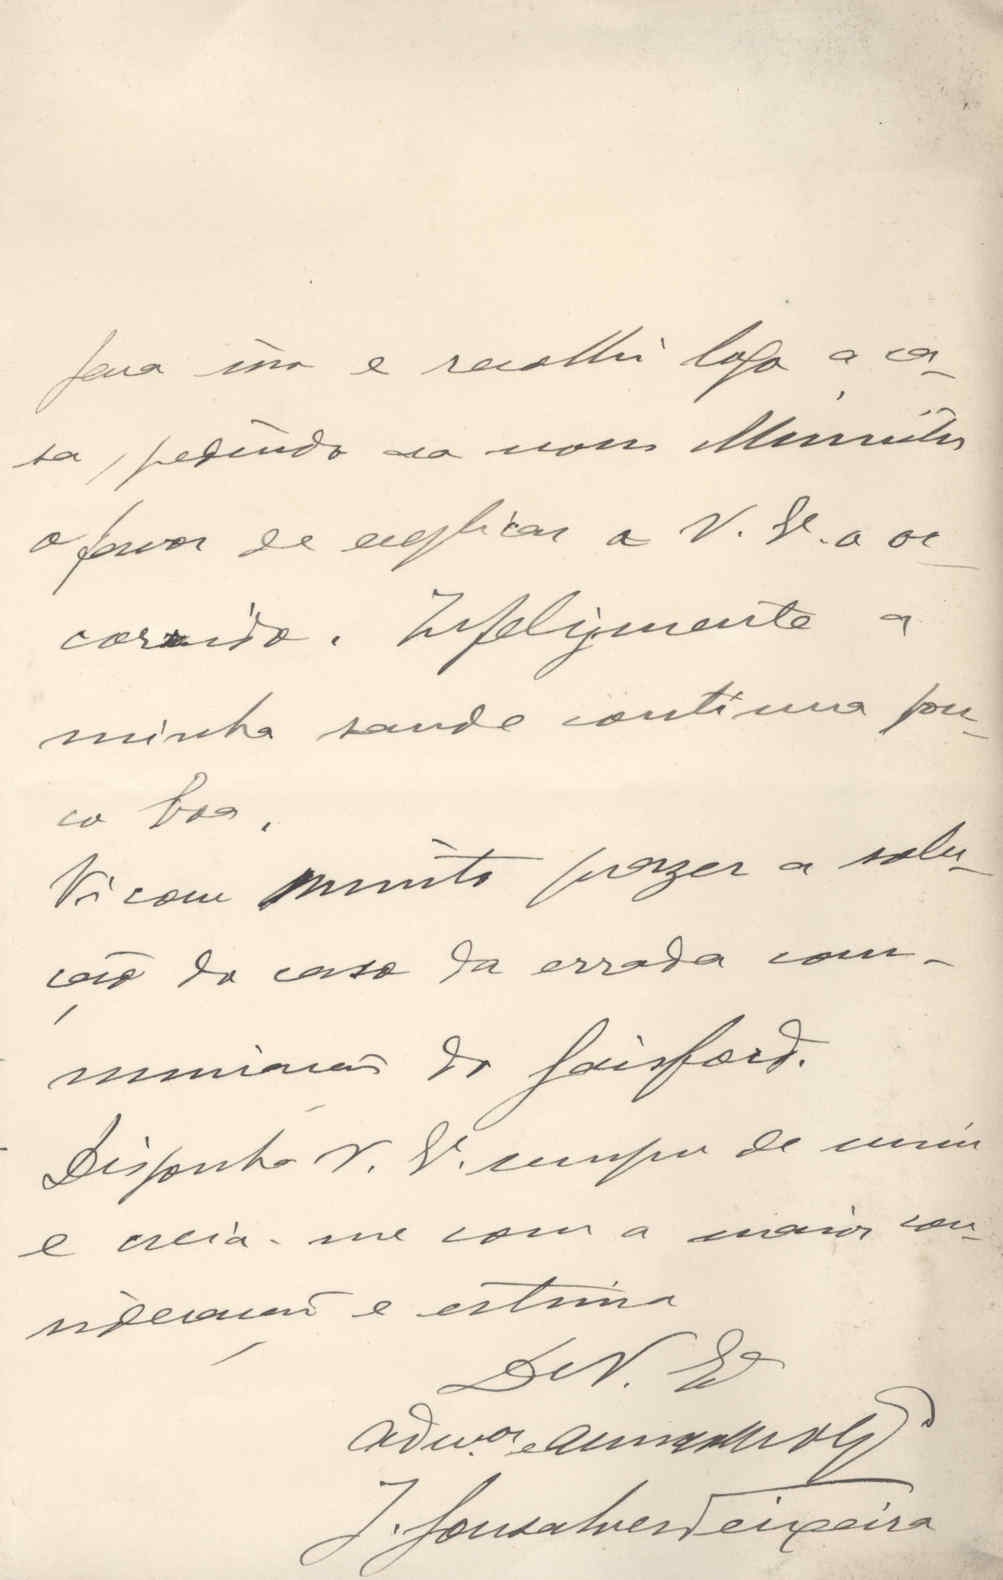 para isso e recolhi logo a ca-
sa, pedindo ao nosso Ministro
o favor de explicar a V. Eª. o oc-
corrido. Infelizmente a
minha saude continua pou-
co boa.
Vi com muito prazer a solu-
ção do caso da errada com-
municação do Gaisford.
Disponha V. Eª. sempre de mim
e creia-me com a maior con-
sideração e estima
De V. Eª
admor. e
J. Gonsalves Teixeira